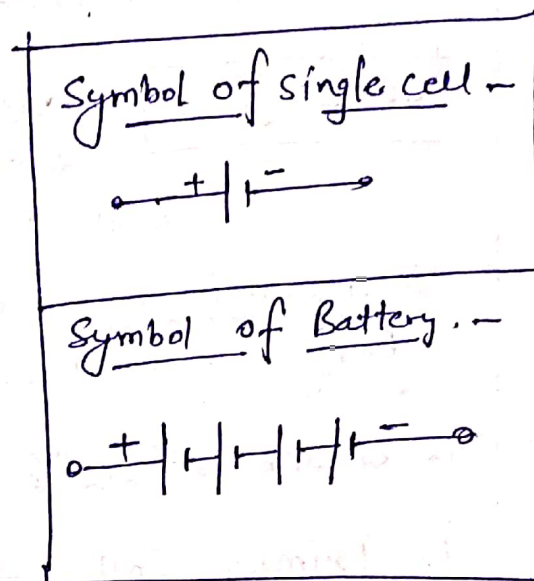 Symbol of single cell -
+ -
Symbol of Battery. -
+ -